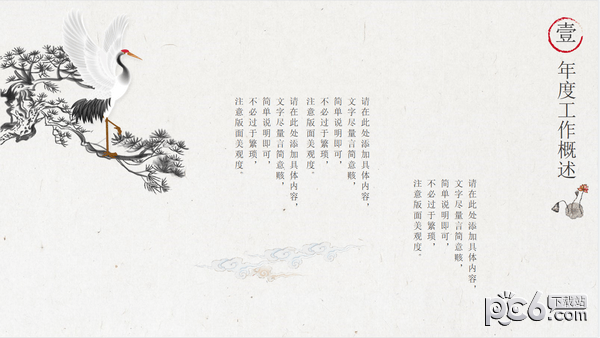 壹
年度工作概述
请在此处添加具体内容，
文字尽量言简意赅，
简单说明即可，
不必过于繁琐，
注意版面美观度。
请在此处添加具体内容，
文字尽量言简意赅，
简单说明即可，
不必过于繁琐，
注意版面美观度。
请在此处添加具体内容，
文字尽量言简意赅，
简单说明即可，
不必过于繁琐，
注意版面美观度。
pc6下载站
.com